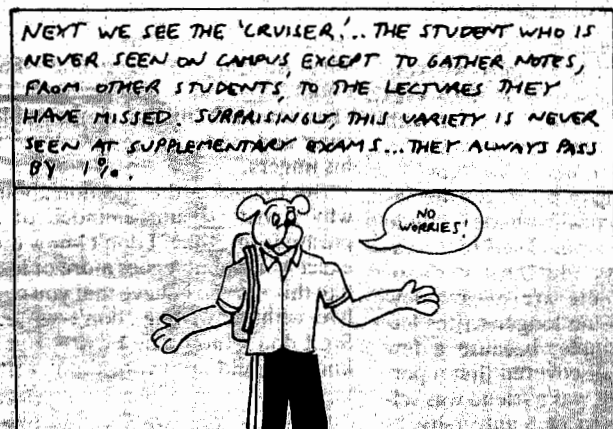 NEXT WE SEE THE 'CRUISER'... THE STUDENT WHO IS
NEVER SEEN ON CAMPUS, EXCEPT TO GATHER NOTES,
FROM OTHER STUDENTS, TO THE LECTURES THEY
HAVE MISSED. SURPRISINGLY, THIS VARIETY IS NEVER
SEEN AT SUPPLEMENTARY EXAMS... THEY ALWAYS PASS
BY 1%.
NO
WORRIES!